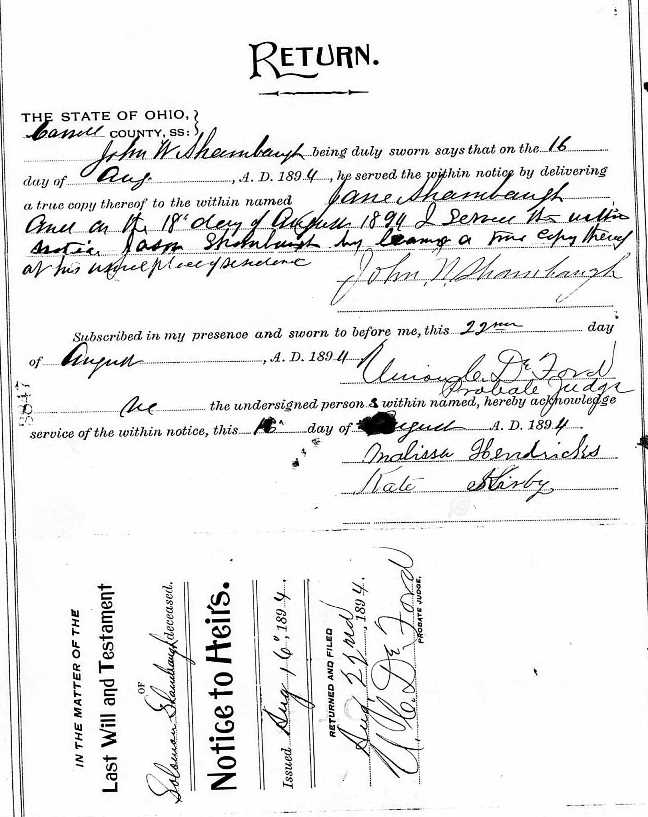 RETURN.
THE STATE OF OHIO, }
Carroll COUNTY, SS: }
John W Shambaugh being duly sworn says that on the 16
day of Aug , A. D. 1894 , he served the within notice by delivering
a true copy thereof to the within named Jane Shambaugh
and on the 18" day of August 1894 I served the within
notice Jason Shambaugh by leaving a true copy thereof
at his usual place of residence
John W Shambaugh
Subscribed in my presence and sworn to before me, this 22nd day
of August , A. D. 1894
Union C. De Ford
Probate Judge
We the undersigned person s within named, hereby acknowledge
service of the within notice, this 16" day of August A. D. 1894
Malissa Hendricks
Kate Kirby
IN THE MATTER OF THE
Last Will and Testament
OF
Solomon Shambaugh deceased.
Notice to Heirs.
Issued Aug 16", 1894.
RETURNED AND FILED
Aug 22nd , 1894.
U. C. De Ford
PROBATE JUDGE.